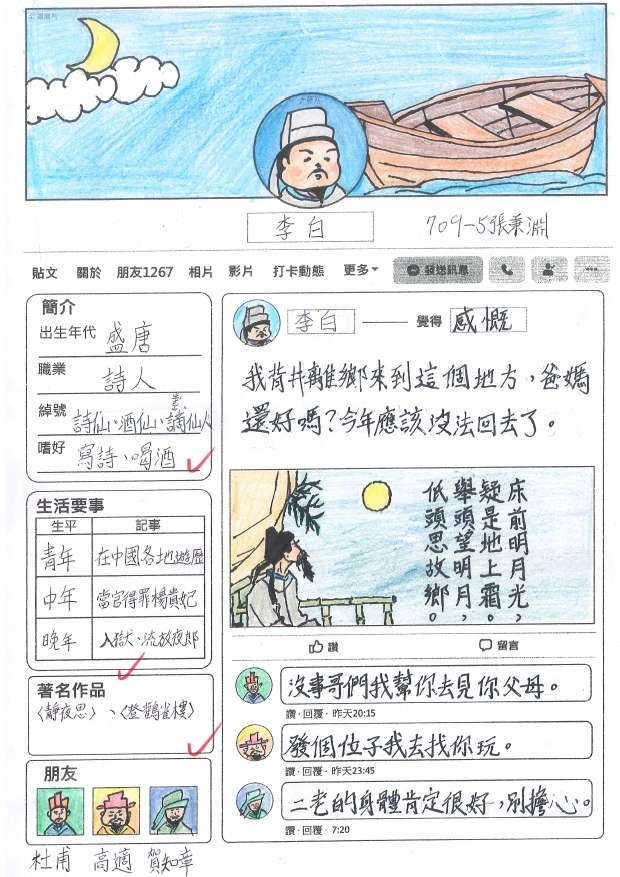 李白
709-5張秉淵
貼文 關於 朋友1267 相片 影片 打卡動態 更多 發送訊息
簡介
出生年代 盛唐
職業 詩人
綽號 詩仙、酒仙、謫仙人
嗜好 寫詩、喝酒
生活要事
生平 記事
青年 在中國各地遊歷
中年 當官得罪楊貴妃
晚年 入獄、流放夜郎
著名作品
〈靜夜思〉、〈登鸛雀樓〉
朋友
杜甫 高適 賀知章
李白 覺得 感慨
我背井離鄉來到這個地方，爸媽
還好嗎？今年應該沒法回去了。
床前明月光，
疑是地上霜。
舉頭望明月，
低頭思故鄉。
讚 留言
沒事哥們我幫你去見你父母。
讚·回覆·昨天20:15
發個位子我去找你玩。
讚·回覆·昨天23:45
二老的身體肯定很好，別擔心。
讚·回覆·7:20